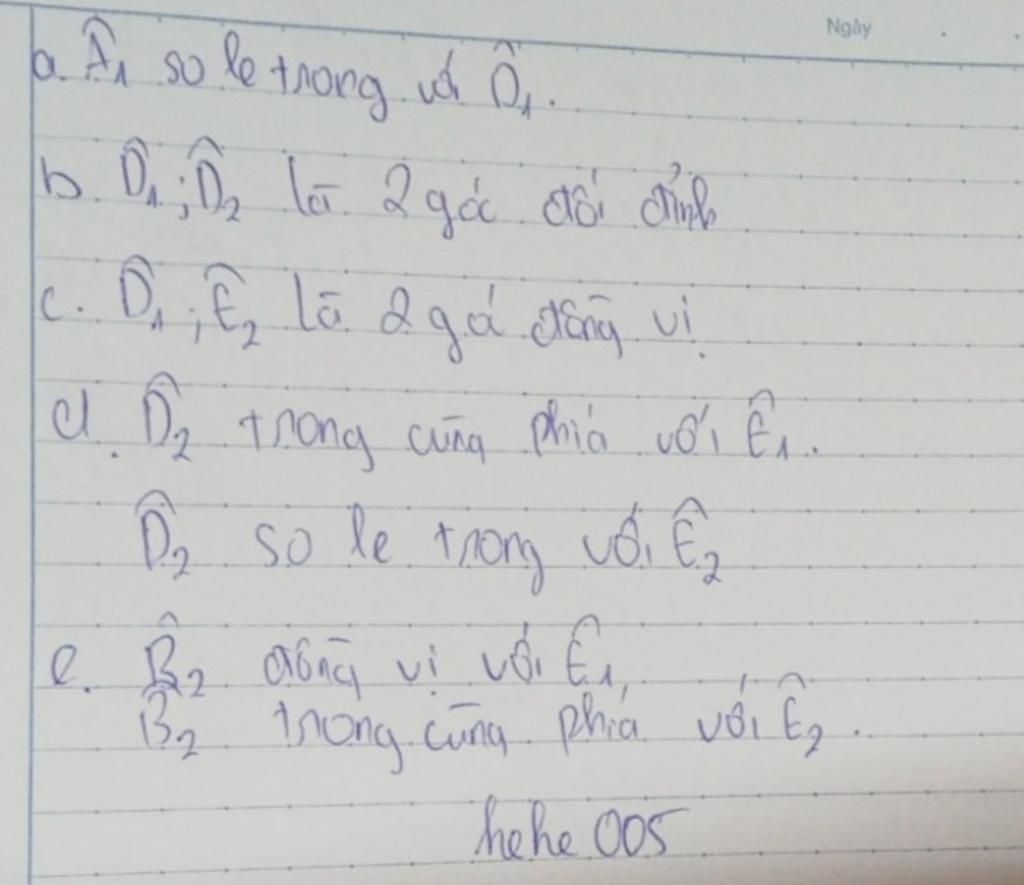 Ngày
a. Â₁ so le trong với D̂₁.
b. D̂₁; D̂₂ là 2 góc đối đỉnh
c. D̂₁; Ê₂ là 2 góc đồng vị
d. D̂₂ trong cùng phía với Ê₁.
D̂₂ so le trong với Ê₂
e. B̂₂ đồng vị với Ê₁,
B̂₂ trong cùng phía với Ê₂.
hehe 005